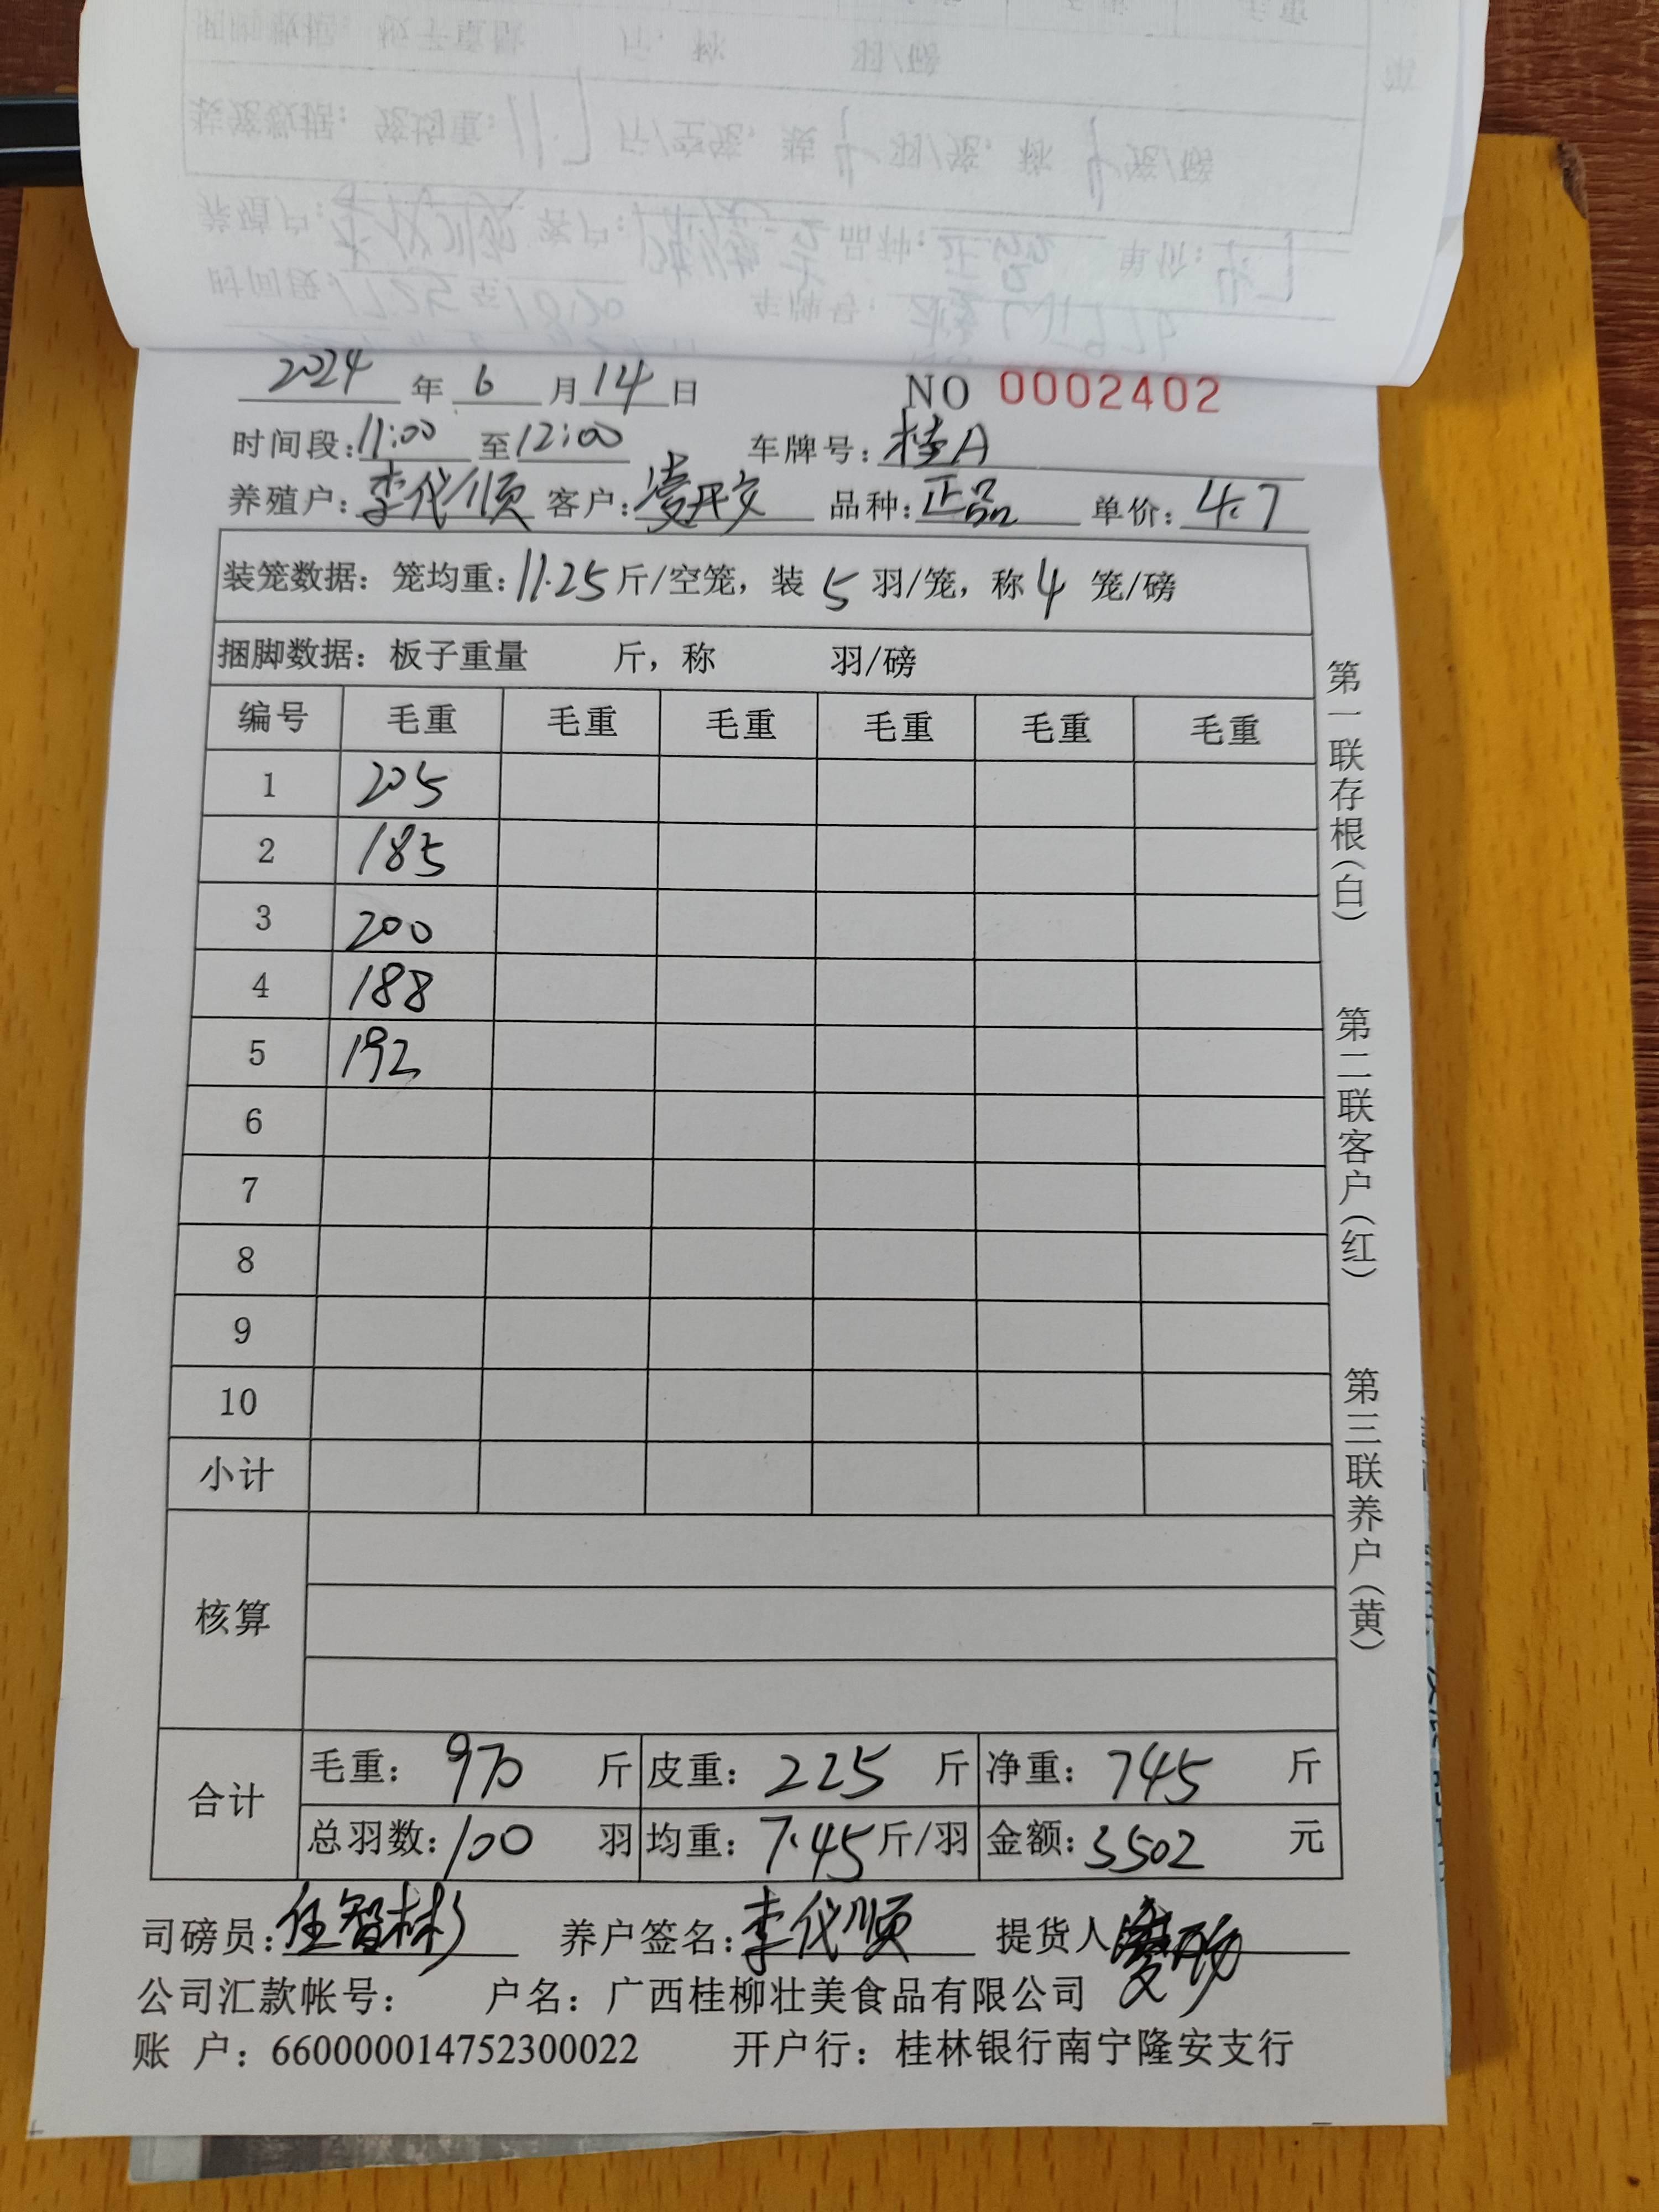 2024 年 6 月 14 日 NO 0002402
时间段:11:00 至 12:00 车牌号:桂A
养殖户:李代顺 客户:凌开文 品种:正品 单价:4.7
装笼数据：笼均重:11.25斤/空笼，装 5 羽/笼，称 4 笼/磅
捆脚数据：板子重量 斤，称 羽/磅
编号 毛重 毛重 毛重 毛重 毛重 毛重
1 205
2 185
3 200
4 188
5 192
6
7
8
9
10
小计
核算
合计
毛重：970 斤 皮重：225 斤 净重：745 斤
总羽数:100 羽 均重：7.45斤/羽 金额:3502 元
司磅员:任智彬 养户签名:李代顺 提货人
公司汇款帐号： 户名：广西桂柳壮美食品有限公司
账 户：660000014752300022 开户行：桂林银行南宁隆安支行
第一联存根（白） 第二联客户（红） 第三联养户（黄）